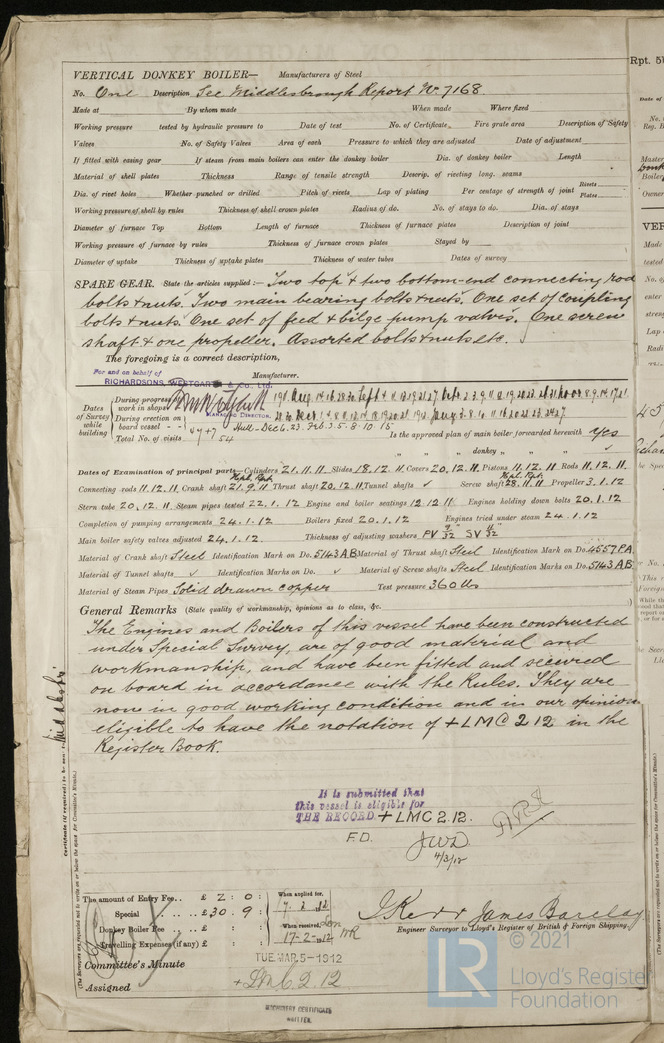 VERTICAL DONKEY BOILER— Manufacturers of Steel
No. One Description See Middlesbrough Report No 7168
Made at By whom made When made Where fixed
Working pressure tested by hydraulic pressure to Date of test No. of Certificate Fire grate area Description of Safety
Valves No. of Safety Valves Area of each Pressure to which they are adjusted Date of adjustment
If fitted with easing gear If steam from main boilers can enter the donkey boiler Dia. of donkey boiler Length
Material of shell plates Thickness Range of tensile strength Descrip. of riveting long. seams
Dia. of rivet holes Whether punched or drilled Pitch of rivets Lap of plating Per centage of strength of joint Rivets Plates
Working pressure of shell by rules Thickness of shell crown plates Radius of do. No. of stays to do. Dia. of stays
Diameter of furnace Top Bottom Length of furnace Thickness of furnace plates Description of joint
Working pressure of furnace by rules Thickness of furnace crown plates Stayed by
Diameter of uptake Thickness of uptake plates Thickness of water tubes Dates of survey
SPARE GEAR. State the articles supplied:— Two top & two bottom-end connecting rod
bolts & nuts. Two main bearing bolts & nuts. One set of coupling
bolts & nuts. One set of feed & bilge pump valves. One screw
shaft & one propeller. Assorted bolts & nuts etc.
The foregoing is a correct description,
For and on behalf of
RICHARDSONS WESTGARTH & Co. Ltd. Manufacturer.
MANAGING DIRECTOR.
Dates of Survey while building
During progress of work in shops - -
During erection on board vessel - - -
Total No. of visits 54
Hull - Dec 6. 23. Feb. 3. 5. 8. 10. 15
Is the approved plan of main boiler forwarded herewith yes
" " " donkey " " "
Dates of Examination of principal parts— Cylinders 21.11.11 Slides 18.12.11 Covers 20.12.11 Pistons 11.12.11 Rods 11.12.11.
Connecting rods 11.12.11. Crank shaft 21.9.11 Thrust shaft 20.12.11 Tunnel shafts ✓ Screw shaft 28.11.11 Propeller 3.1.12
Stern tube 20.12.11. Steam pipes tested 22.1.12 Engine and boiler seatings 12.12.11 Engines holding down bolts 20.1.12
Completion of pumping arrangements 24.1.12 Boilers fixed 20.1.12 Engines tried under steam 24.1.12
Main boiler safety valves adjusted 24.1.12. Thickness of adjusting washers PV 9/32 SV 11/32
Material of Crank shaft Steel Identification Mark on Do. 5143 AB Material of Thrust shaft Steel Identification Mark on Do. 4557 PA
Material of Tunnel shafts ✓ Identification Marks on Do. ✓ Material of Screw shafts Steel Identification Marks on Do. 5143 AB
Material of Steam Pipes Solid drawn copper Test pressure 360 lbs
General Remarks (State quality of workmanship, opinions as to class, &c.
The Engines and Boilers of this vessel have been constructed
under Special Survey, are of good material and
workmanship, and have been fitted and secured
on board in accordance with the Rules. They are
now in good working condition and in our opinion
eligible to have the notation of + LMC 2 12 in the
Register Book.
It is submitted that
this vessel is eligible for
THE RECORD + LMC 2.12.
F.D.
JWD
4/3/12
The amount of Entry Fee.. £ 2 : 0 :
Special .. .. .. £ 30 . 9 :
Donkey Boiler Fee .. .. £ : :
Travelling Expenses (if any) £ : :
When applied for,
17. 2. 1912
When received,
17-2-1912
J. Kerr James Barclay
Engineer Surveyor to Lloyd's Register of British & Foreign Shipping.
Committee's Minute TUE. MAR. 5-1912
Assigned + LMC 2. 12
MACHINERY CERTIFICATE
WRITTEN.
© 2021
LR
Lloyd's Register
Foundation
Rpt. 5